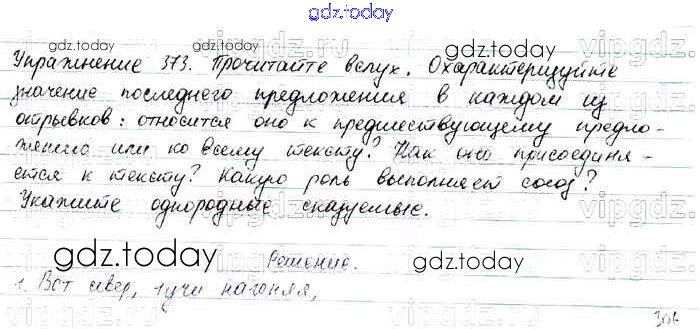 gdz.today
Упражнение 373. Прочитайте вслух. Охарактеризуйте
значение последнего предложения в каждом из
отрывков: относится оно к предшествующему предло-
жению или ко всему тексту? Как оно присоединя-
ется к тексту? Какую роль выполняет союз?
Укажите однородные сказуемые.
gdz.today
Решение.
1. Вот север, тучи нагоняя,
306